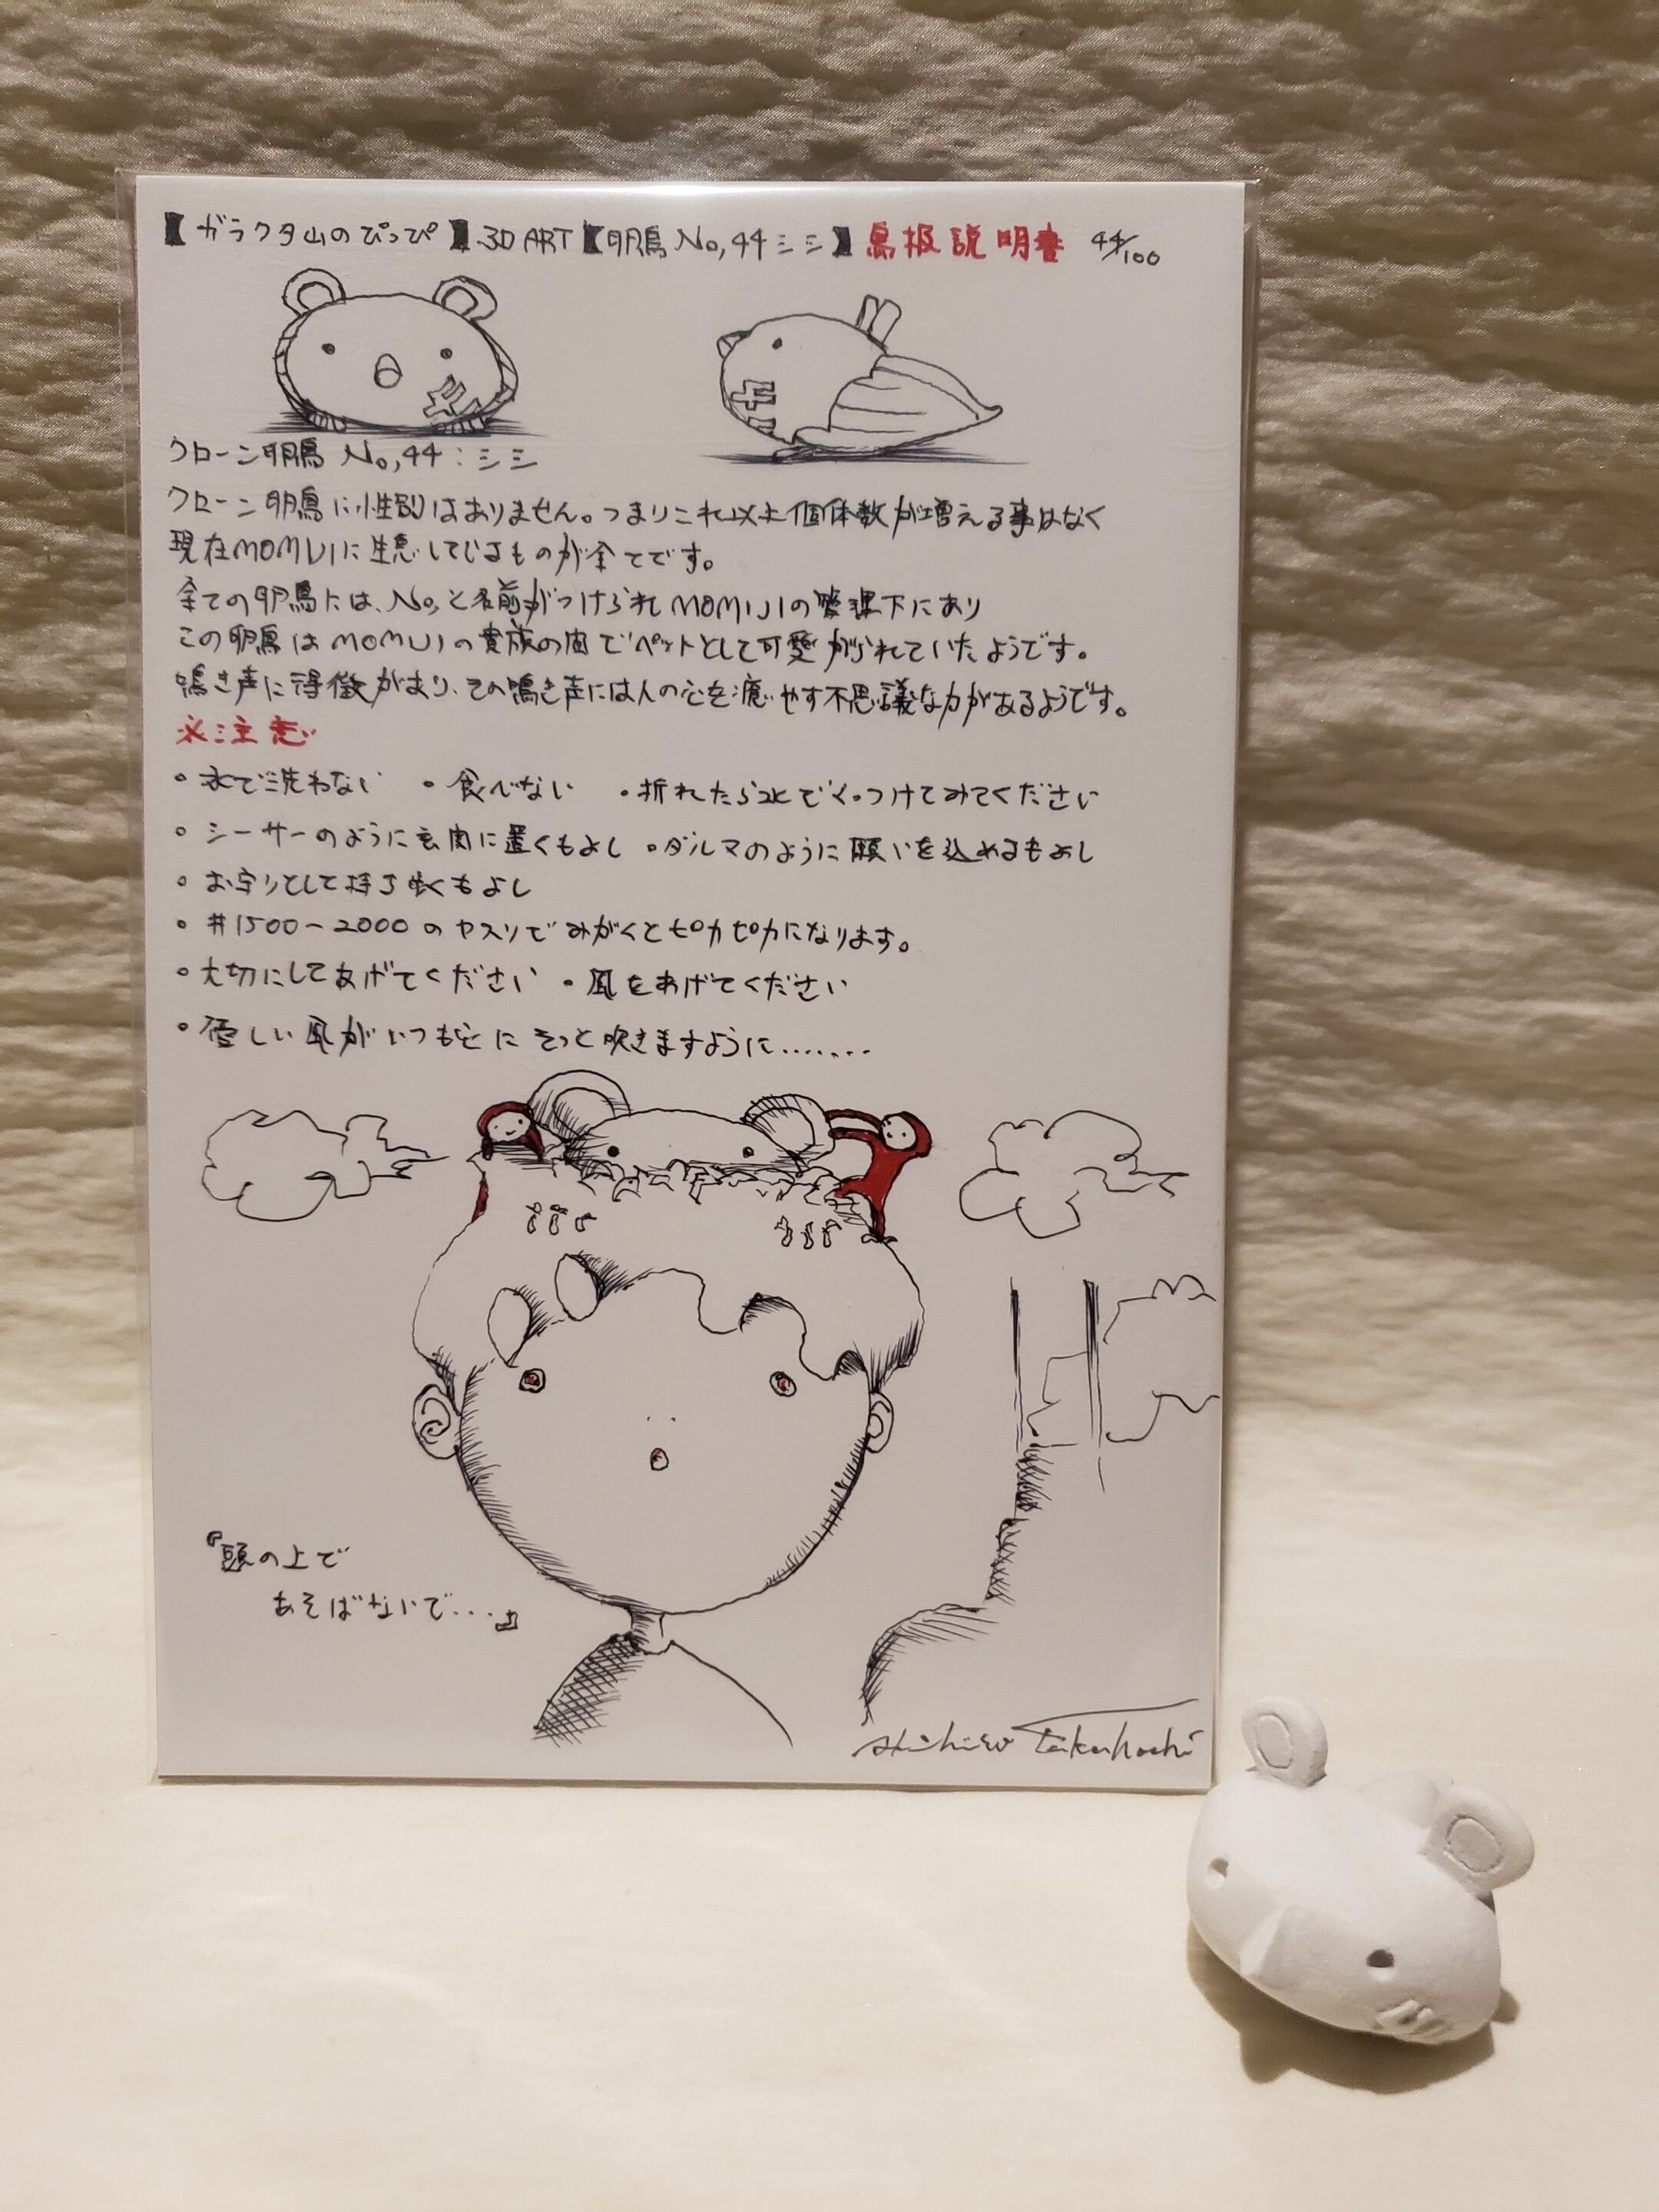 【ガラクタ山のぴっぴ】3D ART【卵鳥 No,44 シシ】鳥扱説明書 44/100
クローン卵鳥 No,44:シシ
クローン卵鳥に性別はありません。つまりこれ以上個体数が増える事はなく
現在MOMIJIに生息してじるものが全てです。
全ての卵鳥には、No,と名前がつけられMOMIJIの管理下にあり
この卵鳥はMOMIJIの貴族の間でペットとして可愛がられていたようです。
鳴き声に特徴があり、その鳴き声には人の心を癒やす不思議な力があるようです。
※注意
・水で洗わない ・食べない ・折れたらボンドでくっつけてみてください
・シーサーのように玄関に置くもよし ・ダルマのように願いを込めるもよし
・お守りとして持ち歩くもよし
・#1500-2000のヤスリでみがくとピカピカになります。
・大切にしてあげてください ・風をあげてください
・優しい風がいつも にそっと吹きますように.......
『頭の上で
あそばないで...』
Akihiro Takahashi